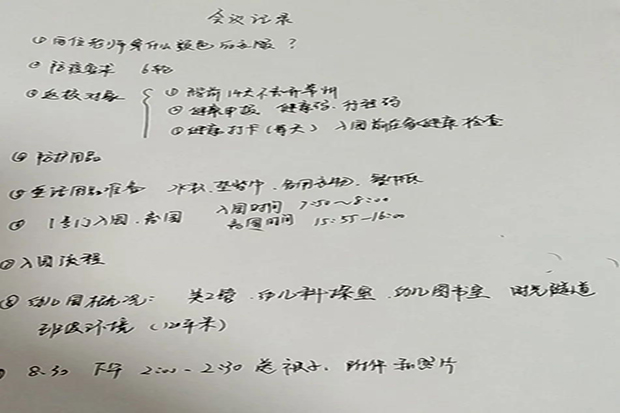 会议记录
① 两位老师穿什么颜色的衣服？
② 防疫要求 6轮
③ 返校对象 { ① 提前14天不离开常州
② 健康申报、健康码、行程码
③ 健康打卡（每天） 入园前在家健康检查
④ 防护用品
⑤ 生活用品准备 水杯、垫背巾、备用衣物、餐巾纸
⑥ 1号门入园、离园 入园时间 7:50～8:00
离园时间 15:55-16:00
⑦ 入园流程
⑧ 幼儿园概况： 美工室、幼儿科探室、幼儿图书室 时光隧道
班级环境（120平米）
8.30 下午 2:00-2:30 送被子、附件和照片